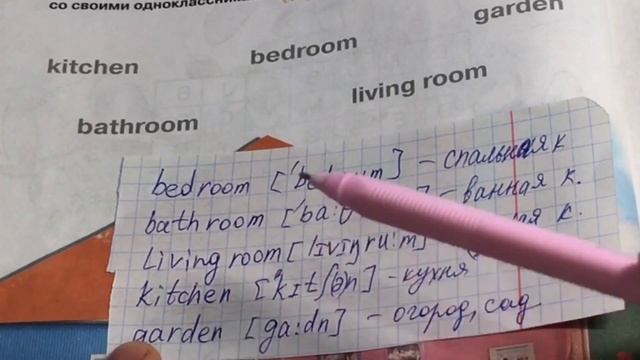 со своими
garden
bedroom
kitchen
living room
bathroom
bedroom [ˈb m] – спальная к
bathroom [ˈba: ] – ванная к.
Living room [lɪvɪŋru:m] к.
kitchen [kɪtʃ(ə)n] – кухня
garden [ga:dn] – огород, сад